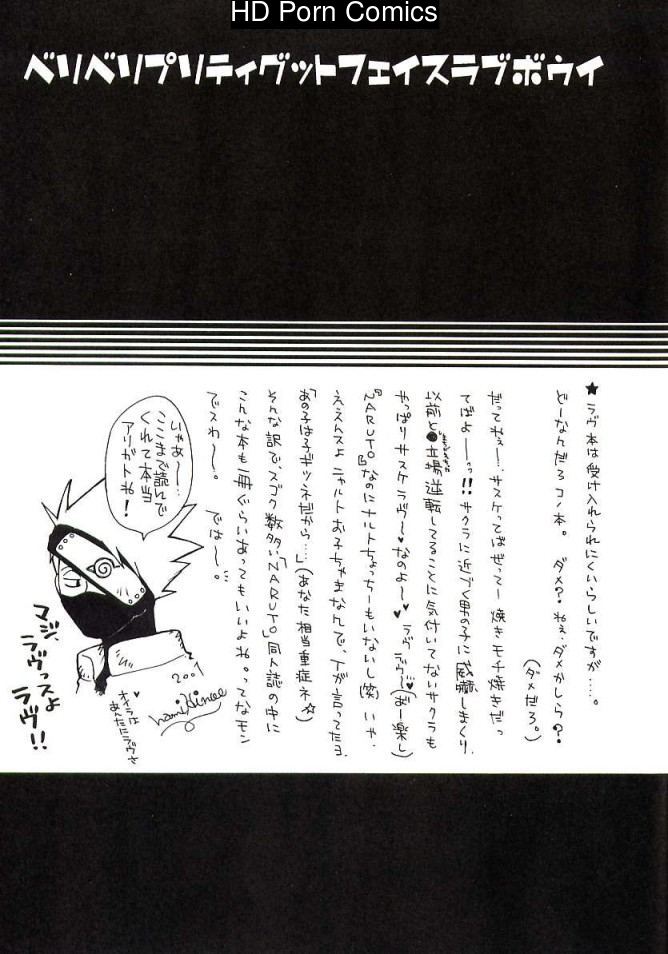 HD Porn Comics
ベリベリプリティグットフェイスラブボウイ
★ラヴ本は受け入れられにくいらしいですが……。
どーなんだろコノ本。 ダメ?ねぇ、ダメかしら?
(ダメだろ。)
だってねぇー…サスケってばぜってー焼きモチ焼きだっ
てばよーーっ!!サクラに近づく男の子に威嚇しまくり、
以前と立場逆転してることに気付いてないサクラも
やっぱりサスケラヴ〜♥なのよ〜♥ ラヴラヴ〜♥(おー楽し)
『NARUTO』なのにナルトちょっちーもいないし(笑)いや、
ええんスよニャルトお子ちゃまなんで、Tが言ってたヨ、
「あの子は子ギツネだから…」(あなた相当重症ネ☆)
そんな訳で、スゴク数多い「NARUTO」同人誌の中に
こんな本も一冊ぐらいあってもいいよね。ってなモン
でスわ〜〜。 では〜〜。
いやあ〜…
ここまで読んで
くれて本当
アリガトね!
マジ、
ラヴっスよ
ラヴ!!
2001
オイラは♥
あんたにラヴさ